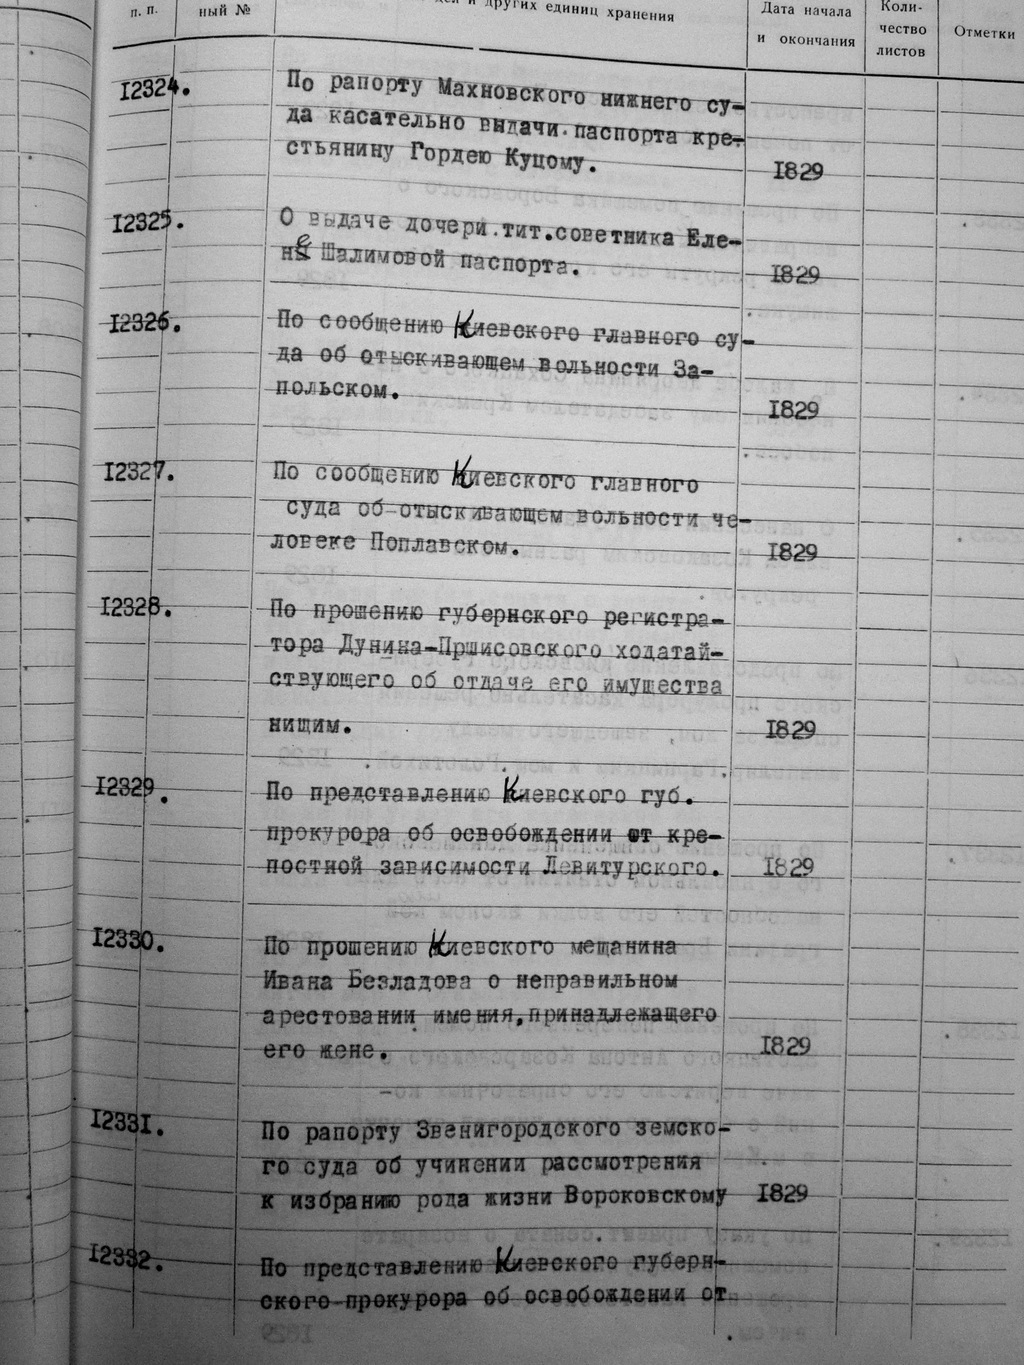 п. п.
ный №
дел и других единиц хранения
Дата начала
и окончания
Коли-
чество
листов
Отметки
12324.
По рапорту Махновского нижнего су-
да касательно выдачи паспорта кре-
стьянину Гордею Куцому.
1829
12325.
О выдаче дочери тит.советника Еле-
не Шалимовой паспорта.
1829
12326.
По сообщению Киевского главного су-
да об отыскивающем вольности За-
польском.
1829
12327.
По сообщению Киевского главного
суда об отыскивающем вольности че-
ловеке Поплавском.
1829
12328.
По прошению губернского регистра-
тора Дунина-Пршисовского ходатай-
ствующего об отдаче его имущества
нищим.
1829
12329.
По представлению Киевского губ.
прокурора об освобождении от кре-
постной зависимости Левитурского.
1829
12330.
По прошению Киевского мещанина
Ивана Безладова о неправильном
арестовании имения,принадлежащего
его жене.
1829
12331.
По рапорту Звенигородского земско-
го суда об учинении рассмотрения
к избранию рода жизни Вороковскому
1829
12332.
По представлению Киевского губерн-
ского прокурора об освобождении от